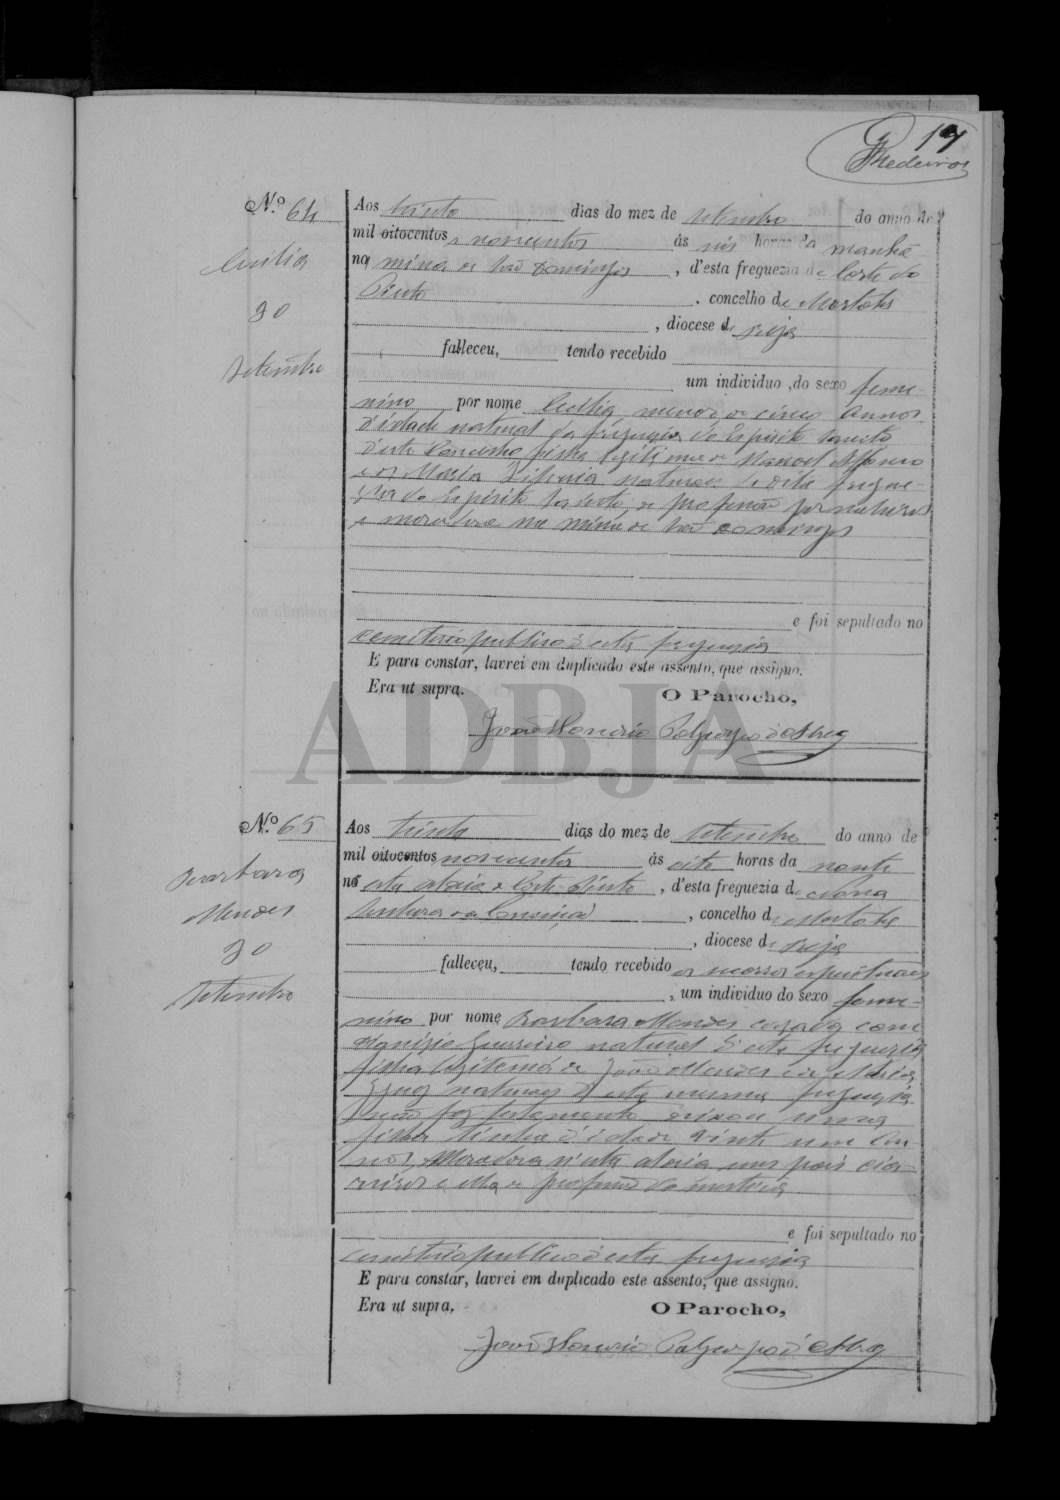 17
Medeiros
N.º 64
Cecilia
30
Setembro
Aos trinta dias do mez de Setembro do anno de
mil oitocentos e novecentos ás seis horas da manhã
na mina de São Domingos, d'esta freguezia de Corte do
Pinto, concelho de Mertola
, diocese de Beja
falleceu, tendo recebido
um individuo do sexo femi-
nino por nome Cecilia, menor de cinco annos
d'idade natural da freguezia do Espirito Santo
d'este Concelho filha legitima de Manoel Affonso
e de Maria naturaes da dita fregue-
zia do Espirito Santo, de profissão jornaleiros
e moradores na mina de São Domingos
e foi sepultado no
cemiterio publico d'esta freguezia
E para constar, lavrei em duplicado este assento, que assigno.
Era ut supra.
O Parocho,
João Honorio d'
ADBJA
N.º 65
Barbara
Mendes
30
Setembro
Aos trinta dias do mez de Setembro do anno de
mil oitocentos novecentos ás oito horas da noute
na esta aldeia de Corte Pinto, d'esta freguezia de Nossa
Senhora da Conceição, concelho de Mertola
, diocese de Beja
falleceu, tendo recebido os socorros espirituaes
, um individuo do sexo femi-
nino por nome Barbara Mendes casada com
Guerreiro natural d'esta freguezia
filha legitima de João Mendes e de Maria
naturaes d'esta mesma freguezia
não fez testamento deixou uma
filha tinha d'idade vinte um an-
nos, Moradora n'esta aldeia seus pais
e ella de profissão domestica
e foi sepultado no
cemiterio publico d'esta freguezia
E para constar, lavrei em duplicado este assento, que assigno.
Era ut supra.
O Parocho,
João Honorio d'